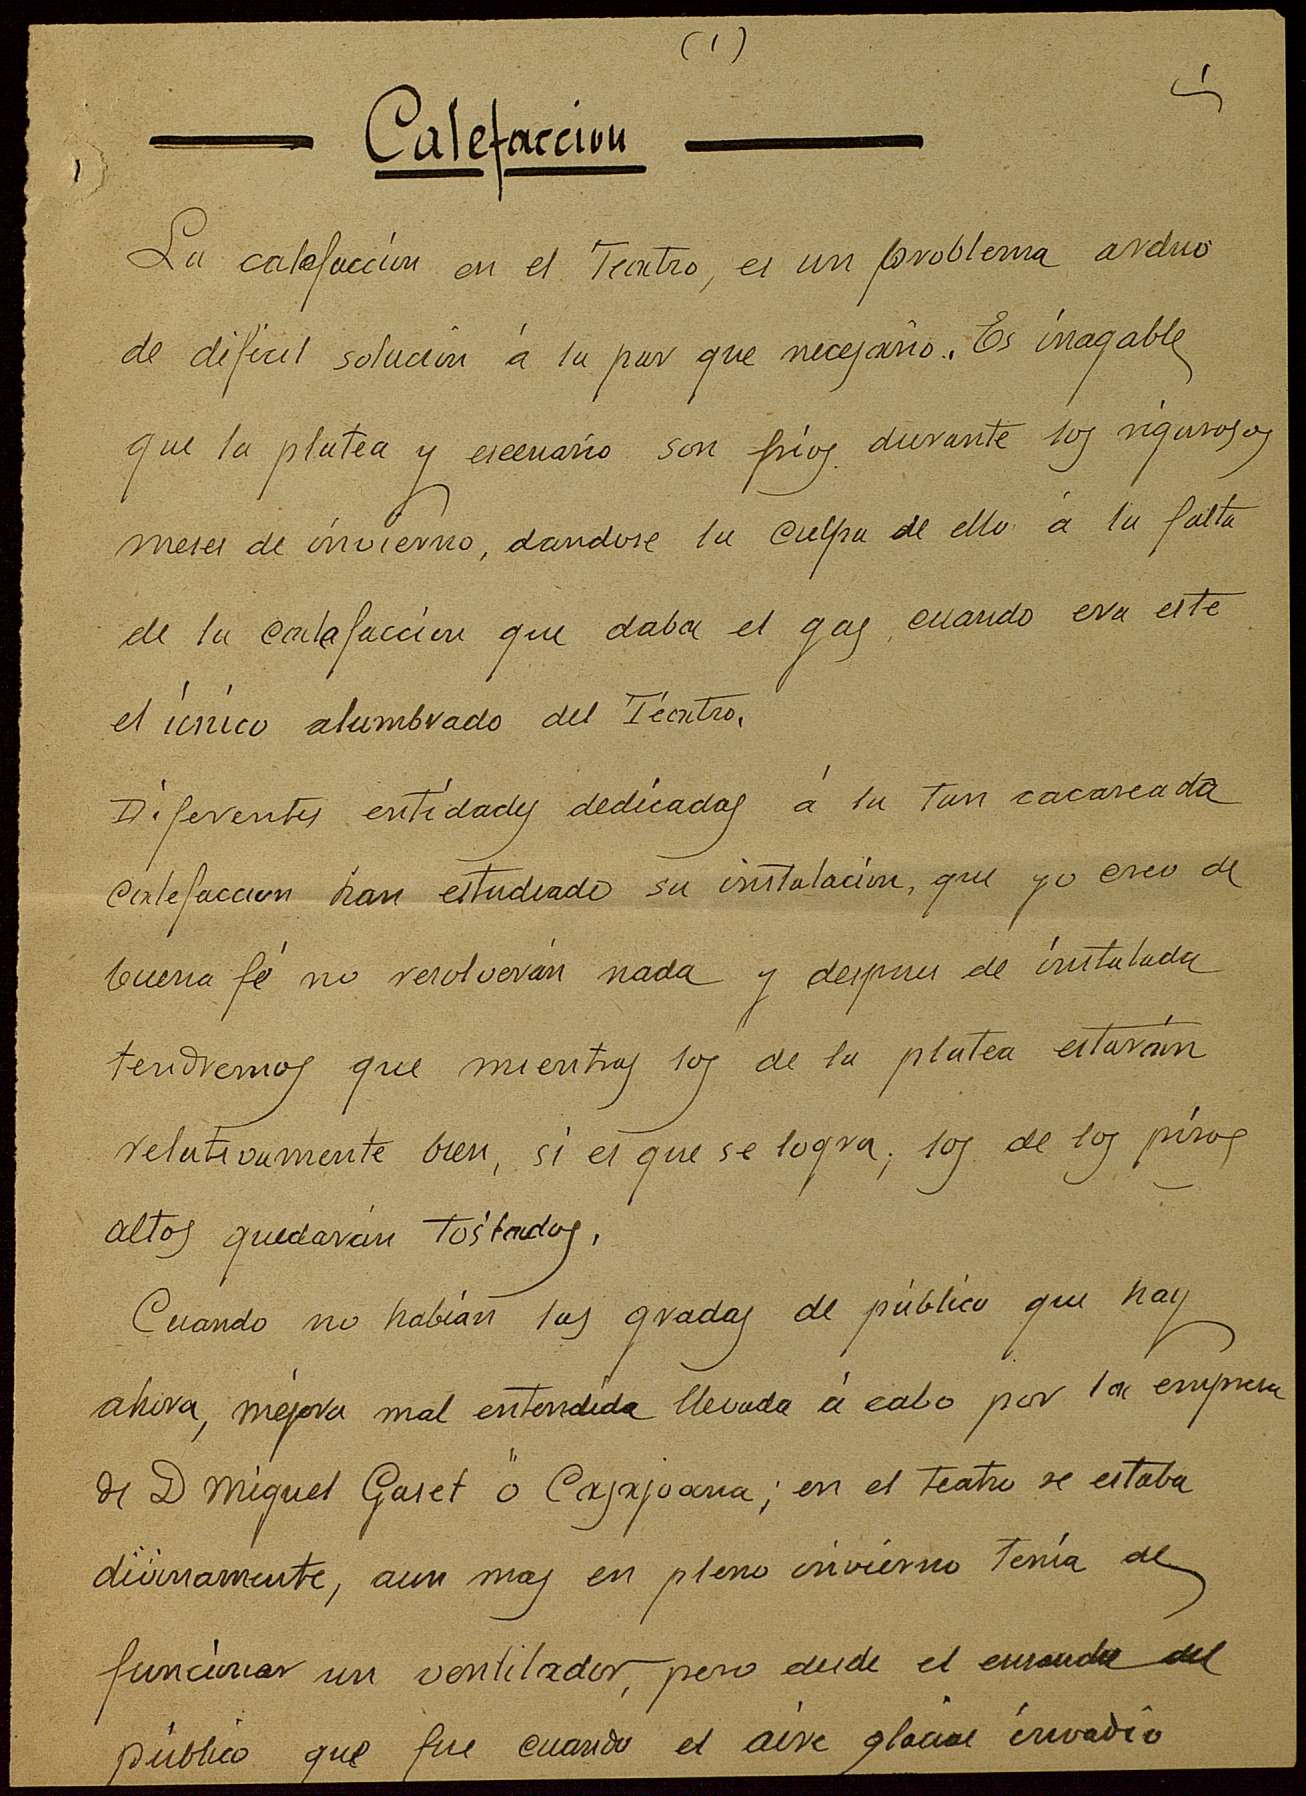 (1)
1
Calefaccion
La calefacción en el Teatro, es un problema arduo
de dificil solución á la par que necesario. Es inagable
que la platea y escenario son fríos durante los rigurosos
meses de invierno, dandose la culpa de ello á la falta
de la calefacción que daba el gas cuando era este
el único alumbrado del Teatro.
Diferentes entidades dedicadas á la tan cacareada
calefaccion han estudiado su instalación, que yo creo de
buena fé no resolverán nada y despues de instalada
tendremos que mientras los de la platea estarán
relativamente bien, si es que se logra; los de los pisos
altos quedarán tostados.
Cuando no habían las gradas de público que hay
ahora, mejora mal entendida llevada á cabo por la empresa
de D Miguel Gaset ó Casajoana; en el teatro se estaba
divinamente, aun mas en pleno invierno tenía de
funcionar un ventilador, pero desde el ensanche del
público que fue cuando el aire glacial invadió